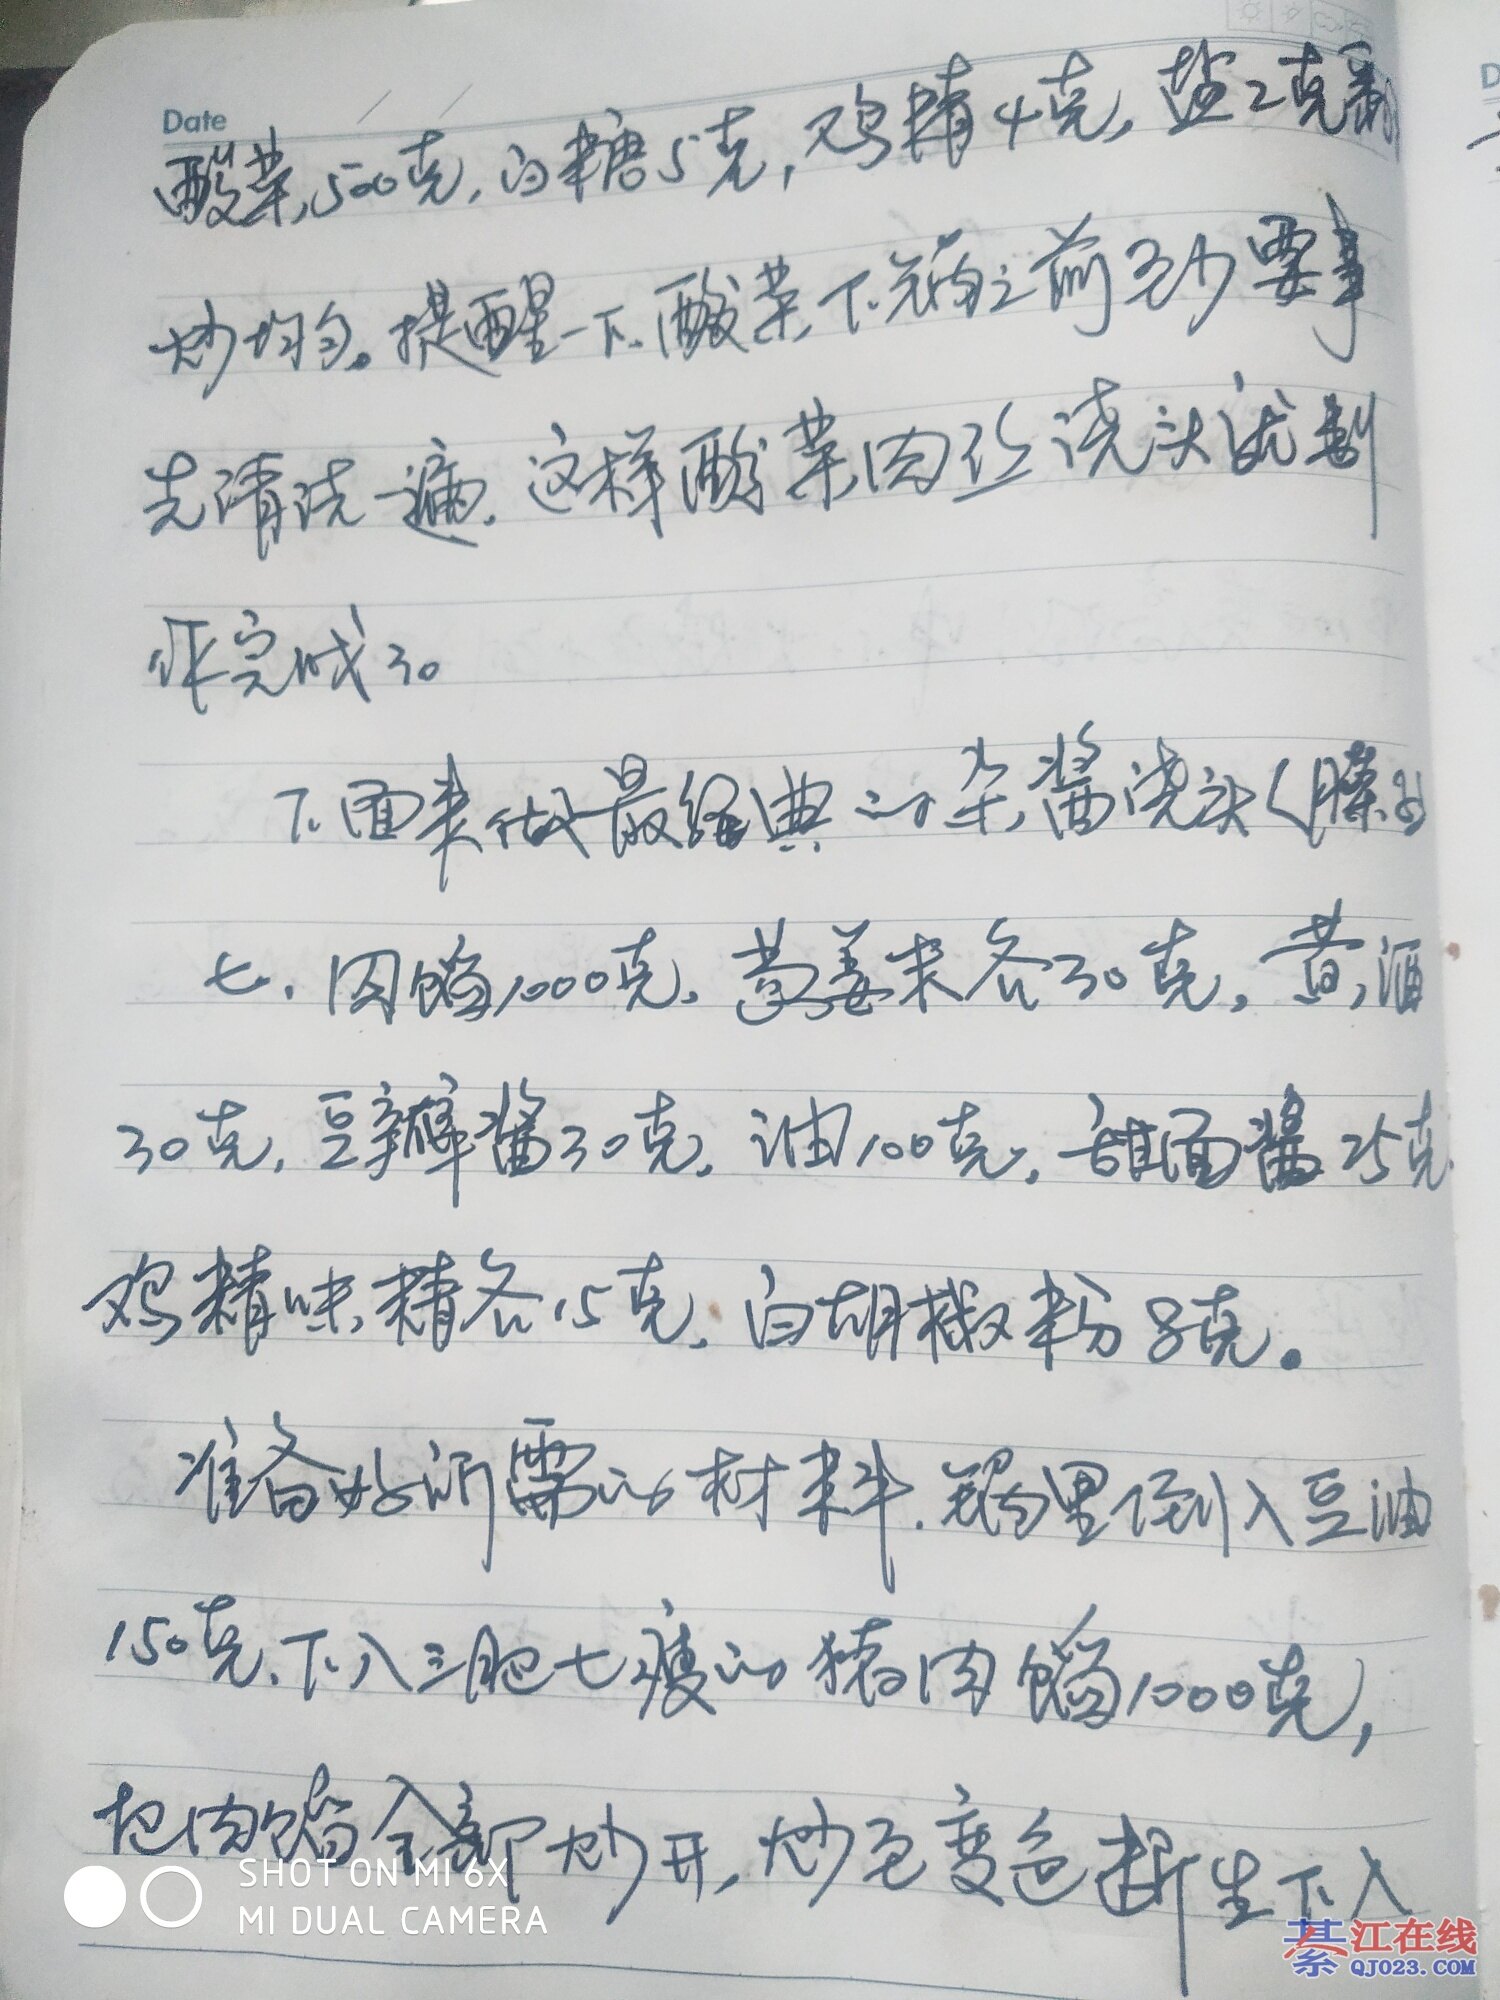 Date
酸菜500克,白糖5克,鸡精4克,盐2克翻
炒均匀。提醒一下.酸菜下锅之前至少要事
先清洗一遍.这样酸菜肉丝浇头就制
作完成了。
下面来做最经典的杂酱浇头(臊子
七、肉馅1000克,葱姜末各30克,黄酒
30克,豆瓣酱30克,油100克,甜面酱25克
鸡精味精各15克,白胡椒粉8克。
准备好所需的材料.锅里倒入豆油
150克,下入三肥七瘦的猪肉馅1000克,
把肉馅全部炒开,炒至变色断生下入
SHOT ON MI 6X
MI DUAL CAMERA
綦江在线
QJ023.COM